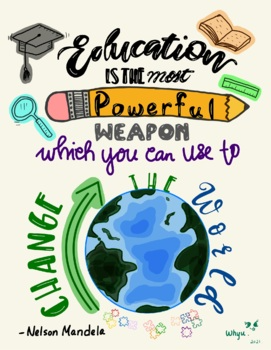 Education
IS THE most
Powerful
WEAPON
which you can use to
CHANGE THE World
- Nelson Mandela
Whyu.
2021